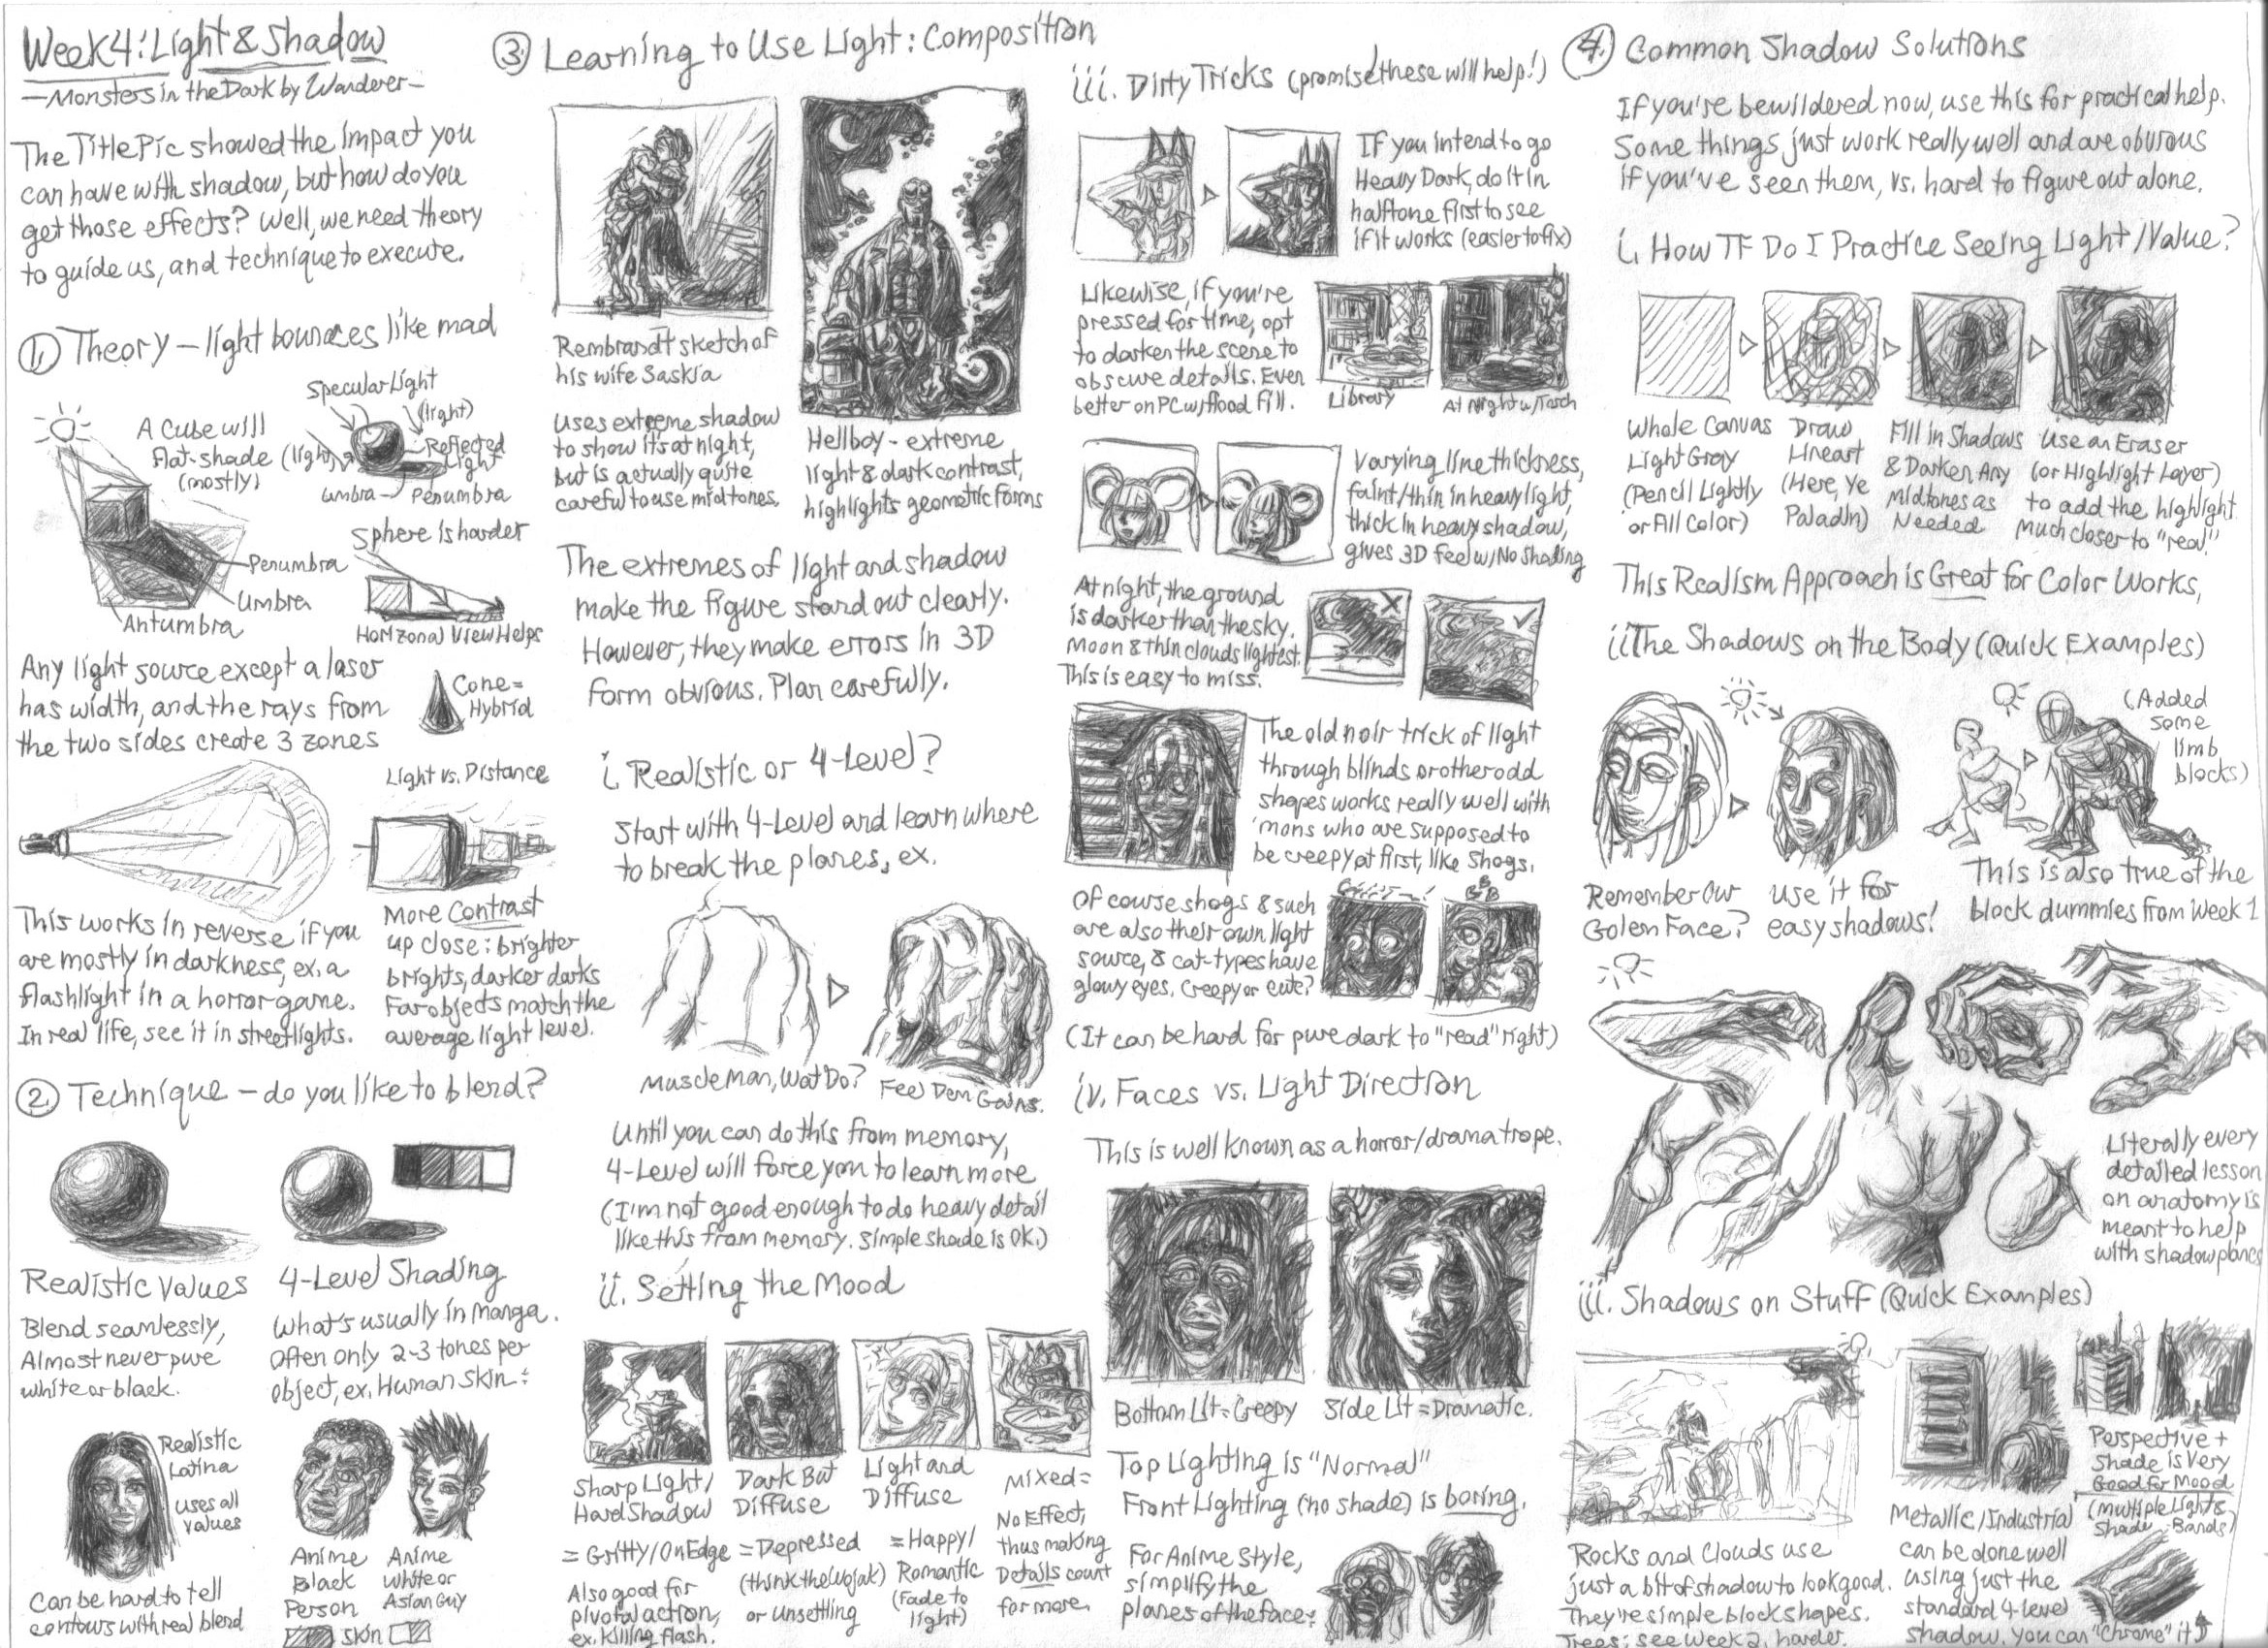 Week 4: Light & Shadow
—Monsters in the Dark by Wanderer—
The Title Pic showed the impact you
can have with shadow, but how do you
get those effects? Well, we need theory
to guide us, and technique to execute.
1. Theory — light bounces like mad
Specular Light
A Cube will
flat-shade
(mostly)
(light)
(light)
Reflected
Light
Umbra
Penumbra
Sphere is harder
Penumbra
Umbra
Antumbra
Horizonal View Helps
Any light source except a laser
has width, and the rays from
the two sides create 3 zones
Cone =
Hybrid
Light vs. Distance
This works in reverse if you
are mostly in darkness, ex. a
flashlight in a horror game.
In real life, see it in streetlights.
More Contrast
up close: brighter
brights, darker darks
Far objects match the
average light level.
2. Technique — do you like to blend?
Realistic Values
Blend seamlessly,
Almost never pure
white or black.
4-Level Shading
What's usually in Manga.
Often only 2-3 tones per
object, ex. Human Skin:
Realistic
Latina
uses all
values
Can be hard to tell
contours with real blend
Anime
Black
Person
Anime
White or
Asian Guy
Skin
3. Learning to Use Light: Composition
Rembrandt sketch of
his wife Saskia
Uses extreme shadow
to show it's at night,
but is actually quite
careful to use midtones.
Hellboy - extreme
light & dark contrast,
highlights geometric forms
The extremes of light and shadow
make the figure stand out clearly.
However, they make errors in 3D
form obvious. Plan carefully.
i. Realistic or 4-Level?
Start with 4-Level and learn where
to break the planes, ex.
Muscle Man, Wat Do?
Feel Dem Gains.
Until you can do this from memory,
4-Level will force you to learn more
(I'm not good enough to do heavy detail
like this from memory. Simple shade is OK.)
ii. Setting the Mood
Sharp Light/
Hard Shadow
= Gritty/On Edge
Also good for
pivotal action,
ex. killing flash.
Dark But
Diffuse
= Depressed
(think the Wojak)
or Unsettling
Light and
Diffuse
= Happy/
Romantic
(Fade to
light)
Mixed =
No Effect,
thus making
Details count
for more.
iii. Dirty Tricks (promise these will help!)
If you intend to go
Heavy Dark, do it in
halftone first to see
if it works (easier to fix)
Likewise, if you're
pressed for time, opt
to darken the scene to
obscure details. Even
better on PC w/flood fill.
Library
At Night w/Torch
Varying line thickness,
faint/thin in heavy light,
thick in heavy shadow,
gives 3D feel w/No Shading
At night, the ground
is darker than the sky.
Moon & thin clouds lightest.
This is easy to miss.
The old noir trick of light
through blinds or other odd
shapes works really well with
'mons who are supposed to
be creepy at first, like Shogs.
Of course shogs & such
are also their own light
source, & cat-types have
glowy eyes. Creepy or cute?
(It can be hard for pure dark to "read" right)
iv. Faces vs. Light Direction
This is well known as a horror/drama trope.
Bottom Lit = Creepy
Side Lit = Dramatic.
Top Lighting is "Normal"
Front Lighting (no shade) is boring.
For Anime Style,
simplify the
planes of the face:
4. Common Shadow Solutions
If you're bewildered now, use this for practical help.
Some things just work really well and are obvious
if you've seen them, vs. hard to figure out alone.
i. How TF Do I Practice Seeing Light/Value?
Whole Canvas
Light Gray
(Pencil Lightly
or Fill Color)
Draw
Lineart
(Here, Ye
Paladin)
Fill in Shadows
& Darken Any
Midtones as
Needed
Use an Eraser
(or Highlight Layer)
to add the highlight.
Much closer to "real."
This Realism Approach is Great for Color Works,
ii. The Shadows on the Body (Quick Examples)
(Added
some
limb
blocks)
Remember Our
Golem Face?
Use it for
easy shadows!
This is also true of the
block dummies from Week 1
Literally every
detailed lesson
on anatomy is
meant to help
with shadow planes
iii. Shadows on Stuff (Quick Examples)
Rocks and Clouds use
just a bit of shadow to look good.
They're simple block shapes.
Trees: see Week 2, harder.
Metallic/Industrial
can be done well
using just the
standard 4-level
shadow. You can "Chrome" it
Perspective +
Shade is Very
Good for Mood
(Multiple Lights
Shade Bands)